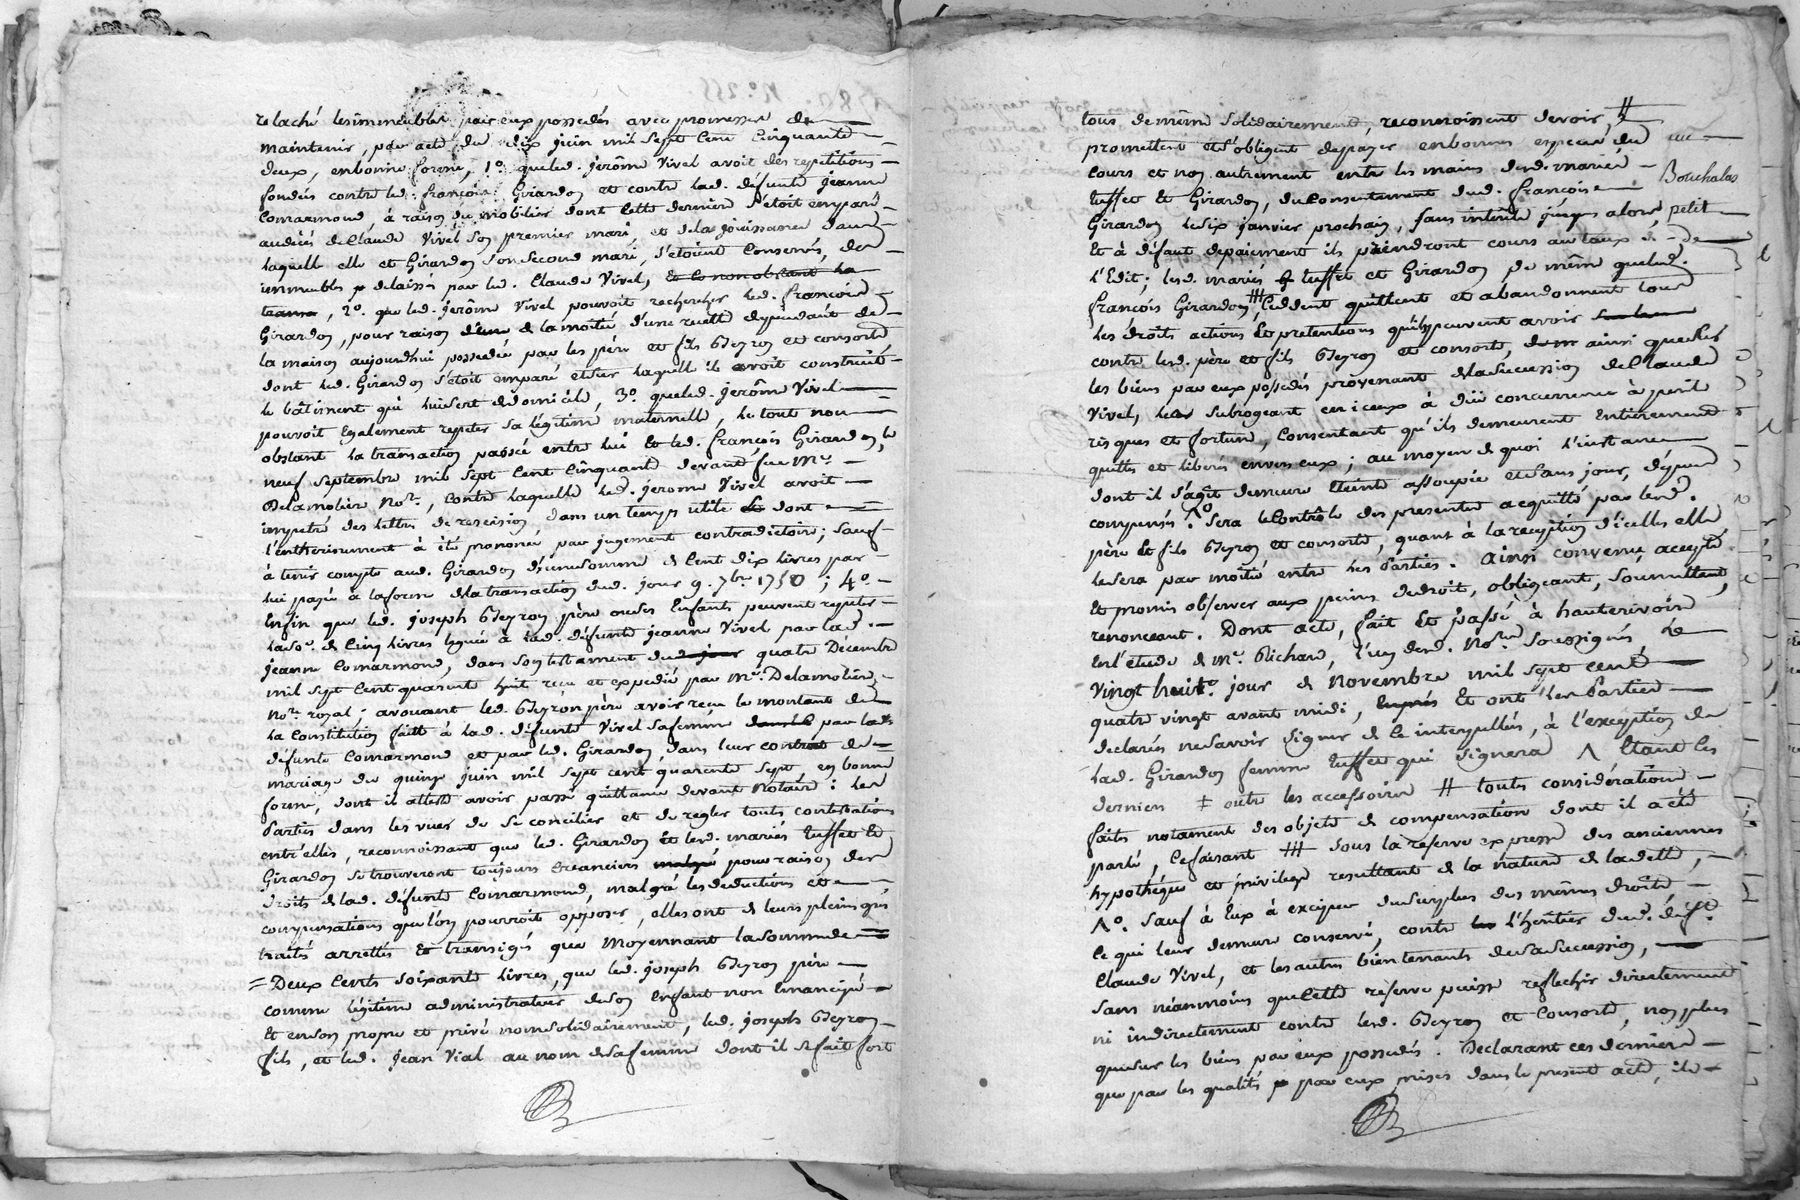 relaché les immeubles par eux possedés avec promesse de
maintenir, par acte du dix juin mil sept cent cinquante
deux, en bonne forme, 1º. que led. jerôme Vivel avoit des repetitions
fondées contre led. françois Girardon et contre lad. défunte jeanne
Comarmond, à raison du mobilier dont cette derniere s'étoit emparé
au décés de Claude Vivel son premier mari, et de la jouissance dans
laquelle elle et Girardon son second mari, s'étoient conservés, des
immeubles delaissés par led. Claude Vivel, et ce nonobstant la
trans, 2º. que led. jerôme Vivel pouvoit rechercher led. françois
Girardon, pour raison de la moitié d'une ruelle dependant de
la maison aujourdhui possedée par les père et fils Peyron et consorts,
dont led. Girardon s'étoit emparé et sur laquelle il avoit construit
le bâtiment qui lui sert de domicile, 3º. que led. jerôme Vivel
pouvoit également repeter sa légitime maternelle, le tout non
obstant la transaction passée entre lui et led. françois Girardon, le
neuf septembre mil sept cent cinquante devant feu Me.
Delamolière Nore., contre laquelle led. jerome Vivel avoit
impetré des lettres de rescision dans un temps utile dont
l'entherinement à été prononcé par jugement contradictoire; sauf
à tenir compte aud. Girardon d'une somme de cent dix livres par
lui payée à la forme de la transaction dud. jour 9. 7bre 1750; 4º.
Enfin que led. joseph Peyron père ou ses Enfants peuvent repeter
la so. de cinq livres leguée à lad. défunte jeanne Vivel par lad.
jeanne Comarmond, dans son testament du quatre Décembre
mil sept cent quarante huit reçu et expedié par Me. Delamolière
Nore. royal; avouant led. Peyron père avoir reçu le montant de
la constitution faite à lad. défunte Vivel sa femme par lad.
défunte Comarmond et par led. Girardon dans leur contrat de
mariage du quinze juin mil sept cent quarante sept en bonne
forme, dont il atteste avoir passé quittance devant Notaire: les
Parties dans les vues de se concilier et de regler toutes contestations
entr'elles, reconnoissant que led. Girardon et led. mariés tuffet et
Girardon se trouveront toujours créanciers pour raison des
droits de lad. défunte Comarmond, malgré les deductions et
compensations que l'on pourroit opposer, elles ont de leurs pleins grés
traités arrettés et transigés que moyennant la somme de
= Deux cents soixante livres, que led. joseph Peyron père
comme légitime administrateur de son Enfant non Emancipé
et en son propre et privé nom solidairement, led. joseph Peyron
fils, et led. jean Vial au nom de sa femme dont il se fait fort
tous de même solidairement, reconnoissent devoir #
promettent et s'obligent de payer en bonnes especes du
cours et non autrement entre les mains desd. mariés
tuffet et Girardon, du consentement dud. françois
Bouchalas
Girardon le six janvier prochain, sans intérêt jusques alors, petit
et à défaut de paiement ils prendront cours au taux de
l'Edit; lesd. mariés tuffet et Girardon de même que led.
françois Girardon, ### cèddent quittent et abandonnent tous
les droits actions et pretentions qu'ils peuvent avoir
contre lesd. père et fils Peyron et consorts, ainsi que sur
les biens par eux possedés provenant de la succession de Claude
Vivel, les subrogeant en iceux à düe concurrence à peril
risques et fortune, consentant qu'ils demeurent entierement
quittes et liberés envers eux; au moyen de quoi l'instance
dont il s'agit demeure éteinte assoupie et sans jour, dépens
compensés. Λº Sera le contrôle des presentes acquitté par lesd.
père et fils Peyron et consorts, quant à la reception d'icelles elle
le sera par moitié entre les Parties. Ainsi convenu accepté
et promis observer aux peines de droit, obligeant, soumettant,
renonceant. Dont acte, fait et passé à hauterivoire
en l'étude de Me. Richard, l'un desd. Nores soussignés le
vingt huite. jour de Novembre mil sept cent
quatre vingt avant midi, et ont les Parties
declarés ne savoir signer de ce interpellés, à l'exception de
lad. Girardon femme tuffet qui signera Λ étant ces
derniers ‡ outre les accessoires # toutes considérations
faites notament des objets de compensation dont il a été
parlé, ce faisant ### sous la reserve expresse des anciennes
hypothéques et privilege resultant de la nature de la dette,
Λº. sauf à Eux à exciper du surplus des mêmes droits
ce qui leur demeure conservé, contre l'heritier dud. déft.
Claude Vivel, et les autres bientenants de sa succession,
sans néanmoins que cette reserve puisse reflechir directement
ni indirectement contre lesd. Peyron et consorts, non plus
que sur les biens par eux possedés. Declarant ces derniers
que par les qualités par eux prises dans le present acte, ils